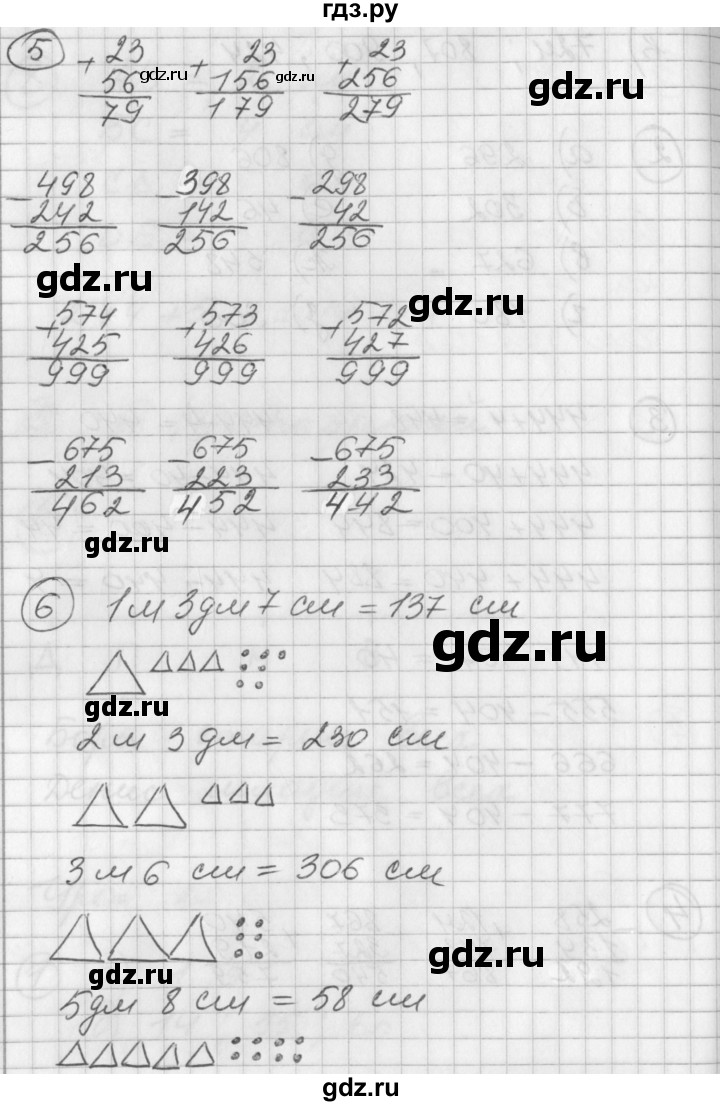 гдз.ру
5 +23 +23 +23
56 156 256
gdz.ru gdz.ru gdz.ru
79 179 279
-498 -398 -298
242 142 42
256 256 256
gdz.ru gdz.ru
+574 +573 +572
425 426 427
999 999 999
-675 -675 -675
213 223 233
462 452 442
gdz.ru gdz.ru
6 1 м 3 дм 7 см = 137 см
gdz.ru
gdz.ru
2 м 3 дм = 230 см
3 м 6 см = 306 см
gdz.ru gdz.ru
5 дм 8 см = 58 см
gdz.ru